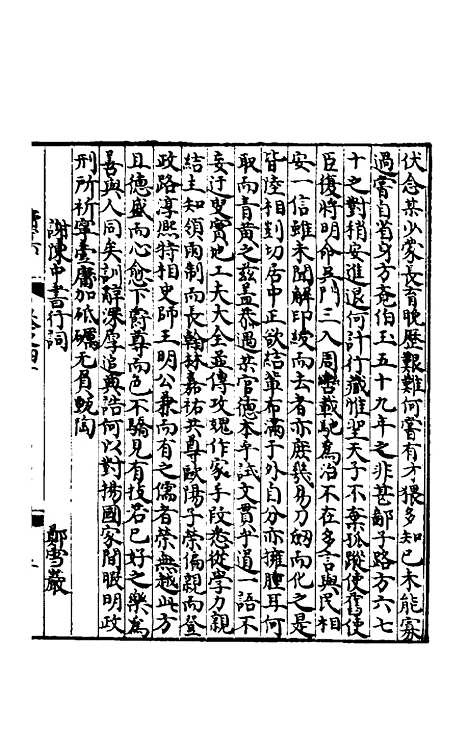 伏念某少蒙長育晚歷艱難何嘗有才猥多知己未能寡
過嘗自省身方尭伯玉五十九年之非甚鄙子路方六七
十之對稍安進退何計行藏惟聖天子不棄孤蹤使舊使
臣復將明命吳門三入周轡載馳為治不在多言與民相
安一信雖未聞解印綬而去者亦庶幾易刀劒而化之是
皆陸相剴切居中正欲結輩布滿于外自分亦擁腫耳何
取而青黃之兹盖恭遇某官德本乎誠文貫乎道一語不
妄于叟實地工夫大全並傳攻媿作家手段悉從學力親
結主知領兩制而長翰林嘉祐共尊歐陽子榮偏親而登
政路淳熙特相史師王明公兼而有之儒者榮無越此方
且德盛而心愈下爵尊而色不驕見有技若己好之樂為
善與人同矣訓辭深厚追典誥何以對揚國家閒暇明政
刑所祈寧壹屬加砥礪无負甄陶
謝陳中書行詞
鄭雪巖